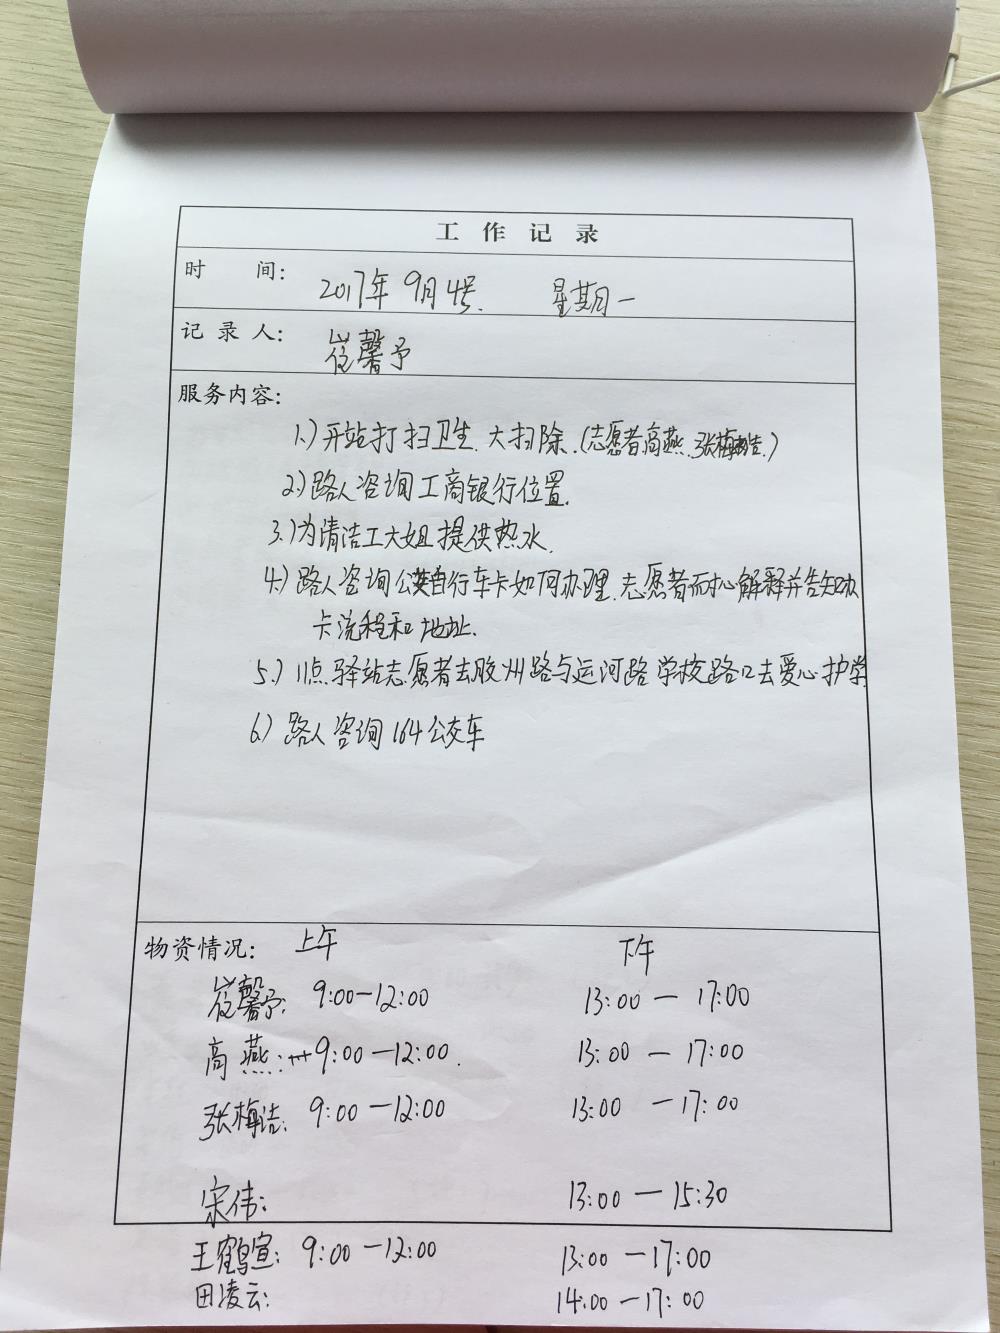 工作记录
时 间： 2017年9月4号. 星期一
记录人： 崔馨予
服务内容：
1.)开站打扫卫生.大扫除.(志愿者高燕.张梅洁.)
2.)路人咨询工商银行位置.
3.)为清洁工大姐提供热水.
4.)路人咨询公共自行车卡如何办理.志愿者耐心解释并告知办
卡流程和地址.
5.)11点驿站志愿者去胶州路与运河路学校路口去爱心护学
6.)路人咨询164公交车
物资情况： 上午 下午
崔馨予: 9:00—12:00 13:00—17:00
高燕: 9:00—12:00. 13:00—17:00
张梅洁: 9:00—12:00 13:00—17:00
宋伟: 13:00—15:30
王鹤宣: 9:00—12:00 13:00—17:00
田凌云: 14:00—17:00